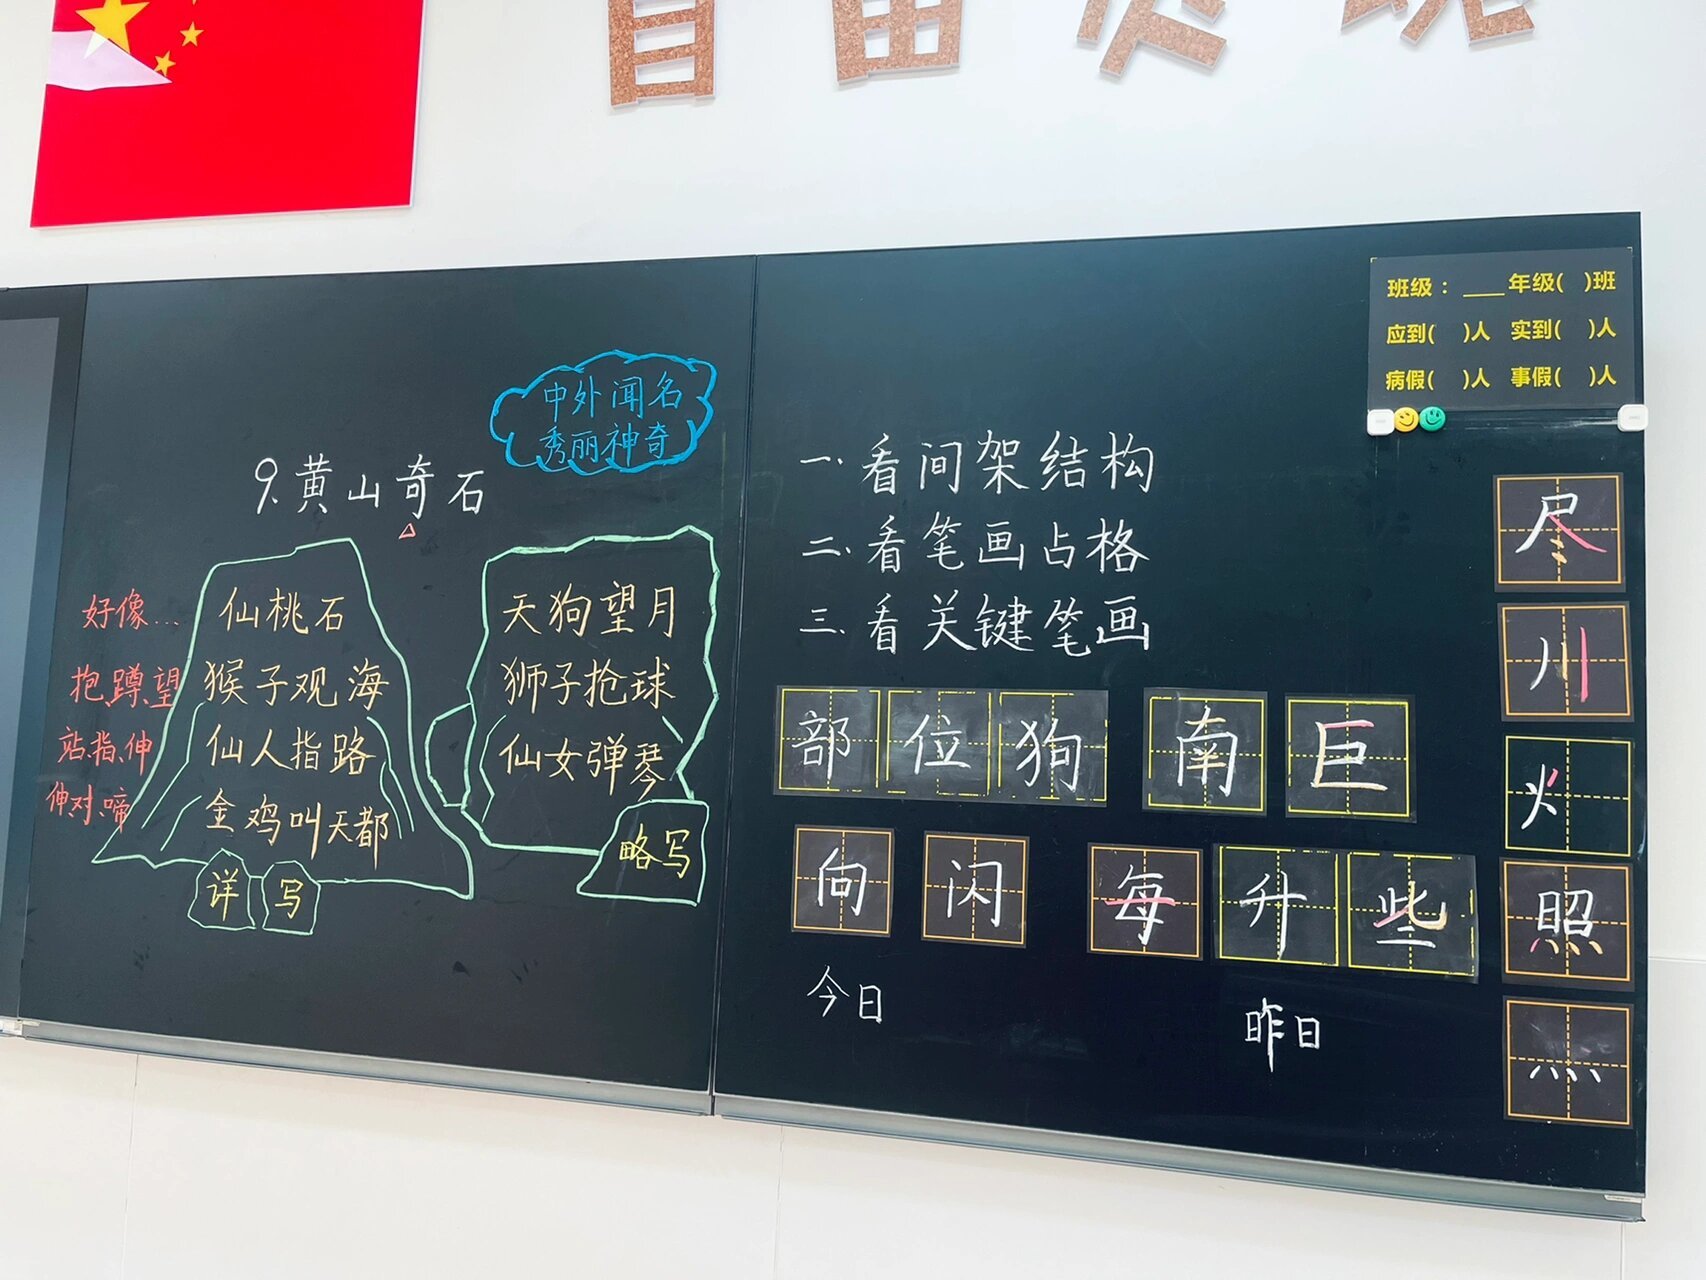 自由
9.黄山奇石
中外闻名
秀丽神奇
好像…
抱、蹲、望
站、指、伸
伸、对、啼
仙桃石
猴子观海
仙人指路
金鸡叫天都
详写
天狗望月
狮子抢球
仙女弹琴
略写
一.看间架结构
二.看笔画占格
三.看关键笔画
部位狗 南 巨
向 闪 每升些
今日 昨日
班级：____年级( )班
应到( )人 实到( )人
病假( )人 事假( )人
尽
川
火
照
灬